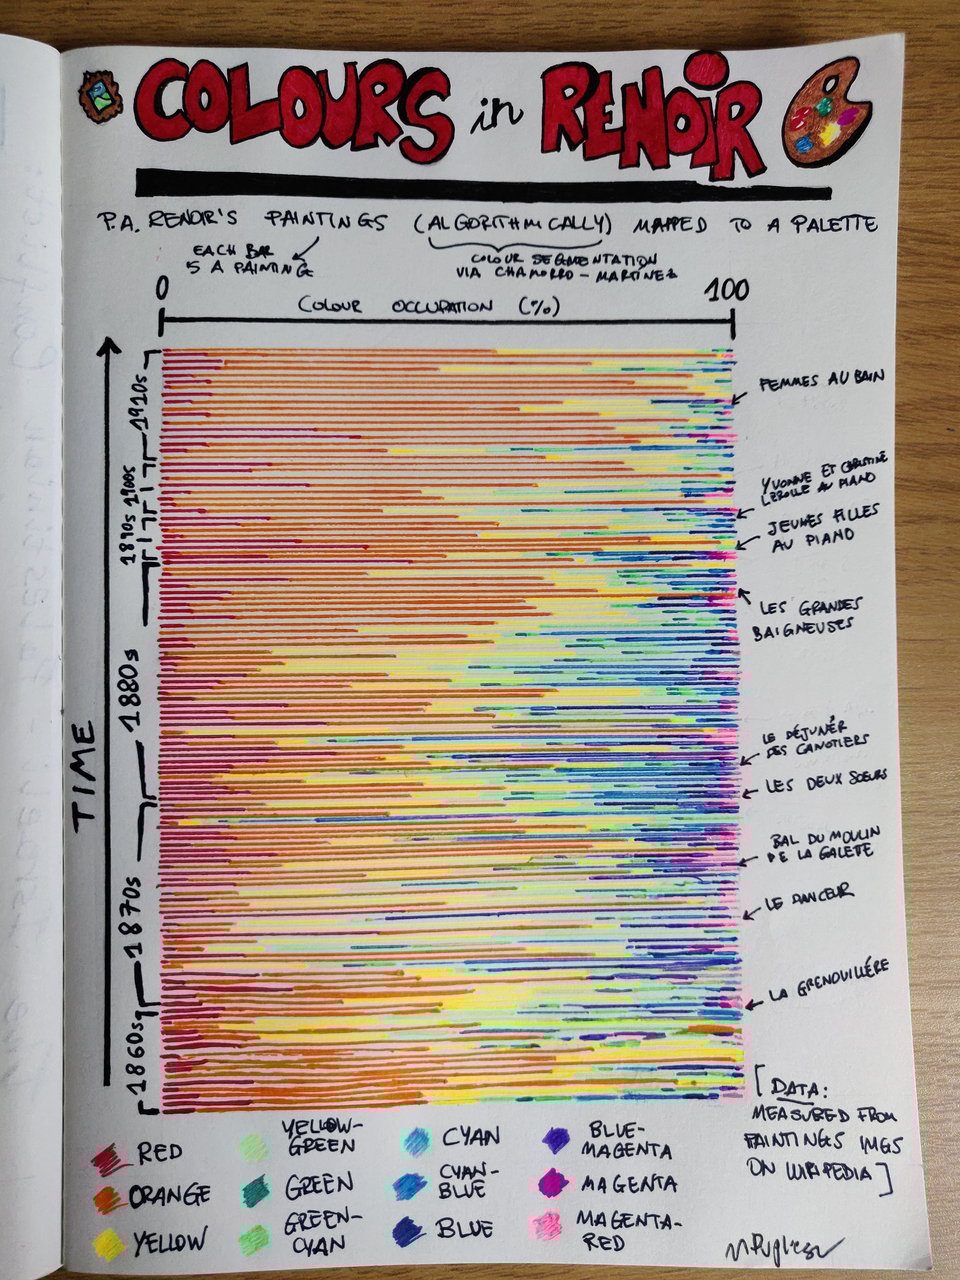 COLOURS in RENOIR
P.A. RENOIR'S PAINTINGS (ALGORITHMICALLY) MAPPED TO A PALETTE
EACH BAR
IS A PAINTING
COLOUR SEGMENTATION
VIA CHAMORRO-MARTINEZ
0
100
COLOUR OCCUPATION (%)
TIME
1910s
1900s
1890s
1880s
1870s
1860s
FEMMES AU BAIN
YVONNE ET CHRISTINE
LEROLLE AU PIANO
JEUNES FILLES
AU PIANO
LES GRANDES
BAIGNEUSES
LE DÉJUNÉR
DES CANOTIERS
LES DEUX SOEURS
BAL DU MOULIN
DE LA GALETE
LE DANCEUR
LA GRENOUILLÉRE
[DATA:
MEASURED FROM
PAINTINGS IMGS
ON WIKIPEDIA]
RED
ORANGE
YELLOW
YELLOW-
GREEN
GREEN
GREEN-
CYAN
CYAN
CYAN-
BLUE
BLUE
BLUE-
MAGENTA
MAGENTA
MAGENTA-
RED